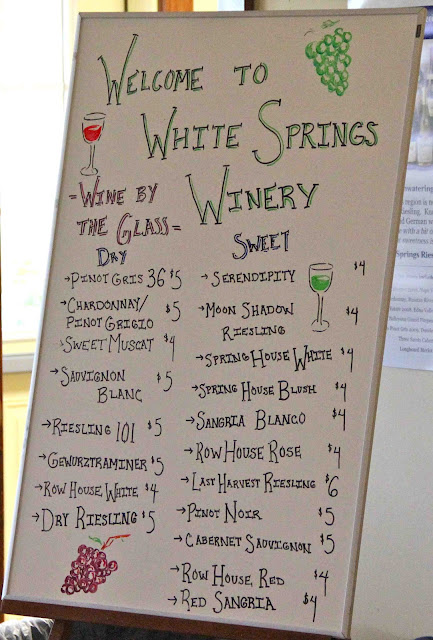 Welcome to
White Springs
Winery
-Wine by
the Glass-
Dry
→Pinot Gris 36 $5
→Chardonnay/
Pinot Grigio $5
→Sweet Muscat $4
→Sauvignon
Blanc $5
→Riesling 101 $5
→Gewurztraminer $5
→Row House, White $4
→Dry Riesling $5
Sweet
→Serendipity $4
→Moon Shadow
Riesling $4
→Spring House White $4
→Spring House Blush $4
→Sangria Blanco $4
→Row House Rose $4
→Last Harvest Riesling $6
→Pinot Noir $5
→Cabernet Sauvignon $5
→Row House, Red $4
→Red Sangria $4
watering
region is
Springs Ries